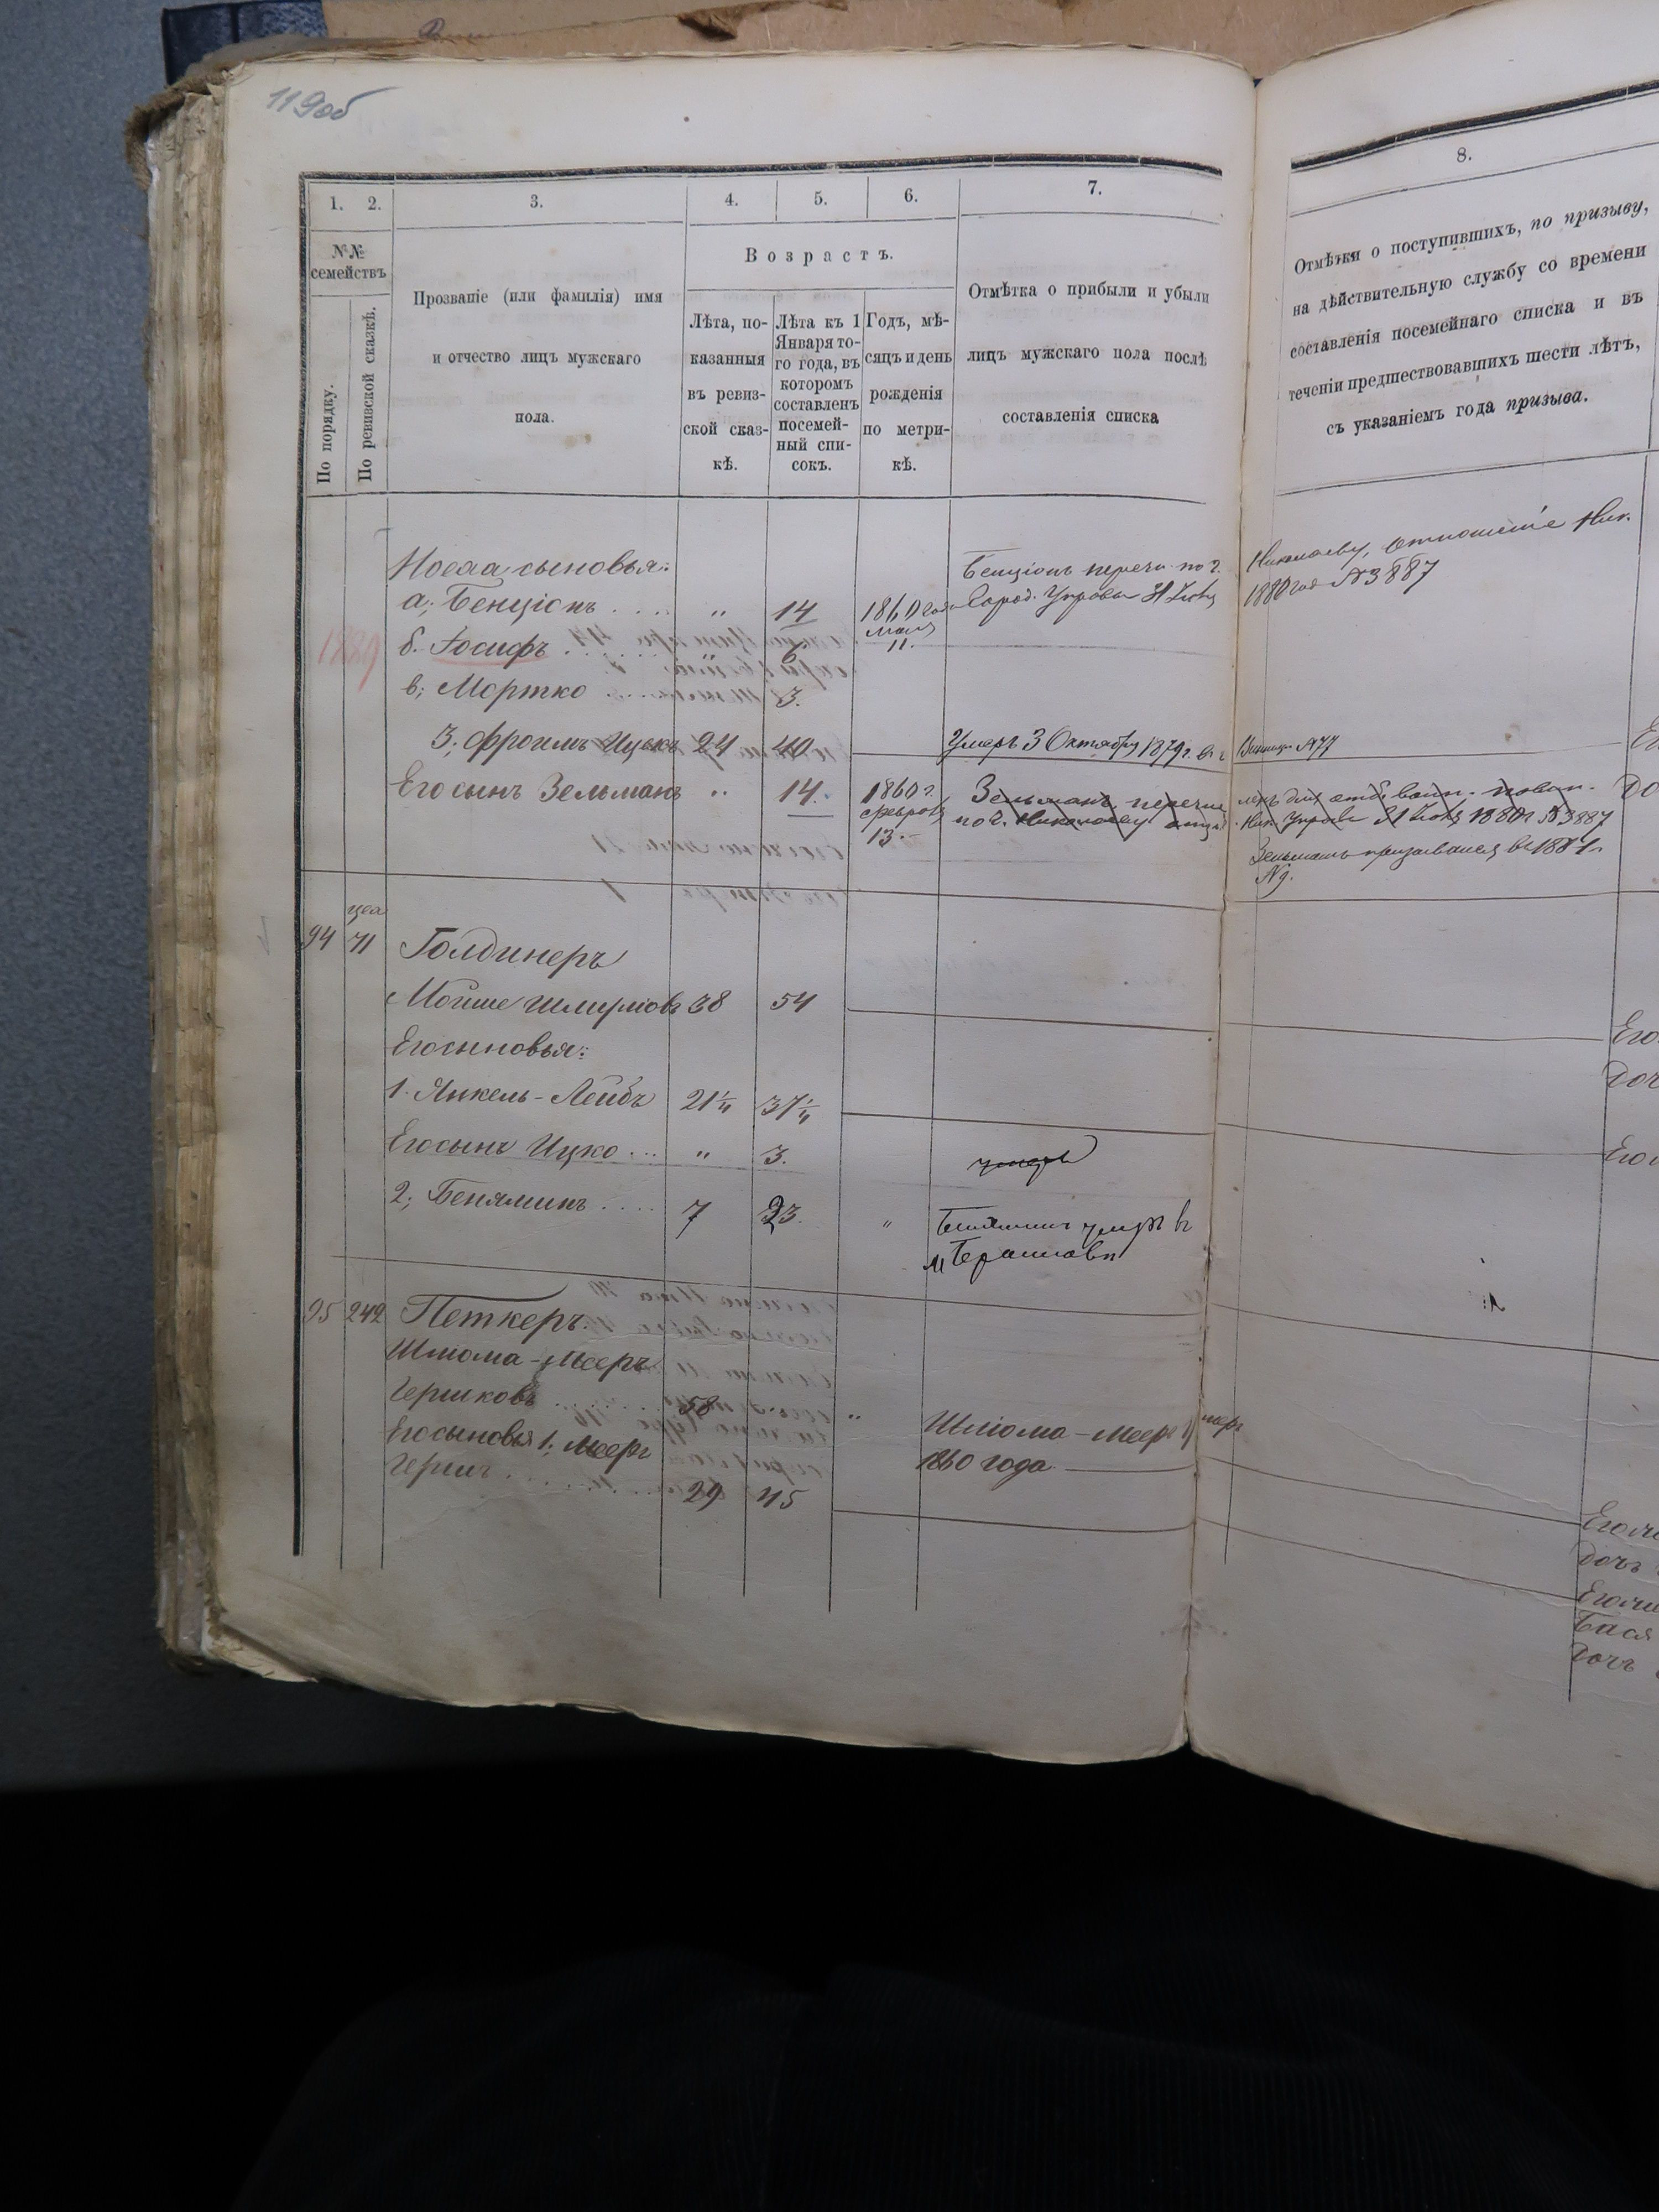 119об
1. 2. 3. 4. 5. 6. 7.
№№ семействъ
По порядку.
По ревизской сказкѣ.
Прозваніе (или фамилія) имя
и отчество лицъ мужскаго
пола.
Возрастъ.
Лѣта, по-
казанныя
въ ревиз-
ской сказ-
кѣ.
Лѣта къ 1
Января то-
го года, въ
которомъ
составленъ
посемей-
ный спи-
сокъ.
Годъ, мѣ-
сяцъ и день
рожденія
по метри-
кѣ.
Отмѣтка о прибыли и убыли
лицъ мужскаго пола послѣ
составленія списка
8.
Отмѣтки о поступившихъ, по призыву,
на дѣйствительную службу со времени
составленія посемейнаго списка и въ
теченіи предшествовавшихъ шести лѣтъ,
съ указаніемъ года призыва.
сыновья:
а; Бенціонъ .... " 14 1860 года Мая 11.
Бенціонъ по г. Николаеву, отношеніе Ник.
Город. Управы 31 1880 год №3887
1889 б. Іосифъ .... " 6
в; Мортко .... 3.
3; Фроимъ Ицьковъ 24 40 Умеръ 3 Октября 1879 г. №77
Его сынъ Зельманъ " 14. 1860 г. февраля 13.
Зельманъ
по г. Николаеву Ник. Управы 31 1880 г №3887
Зельманъ призывался въ
№9.
94 71 Голдинеръ
Мойше 38 54
Его сыновья:
1. Янкель-Лейбъ 21¼ 37¼
Его сынъ Ицко ... " 3. умеръ
2; Беняминъ .... 7 23. " Беняминъ умеръ въ
м
95 242 Петкеръ.
Шлиома-Мееръ
Гершковъ .... 58 " Шлиома-Мееръ умеръ
1860 года
Его сыновья 1; Мееръ
Гершъ .... 29 45
Его
Доч
Его
Дочь
Бася
Дочь